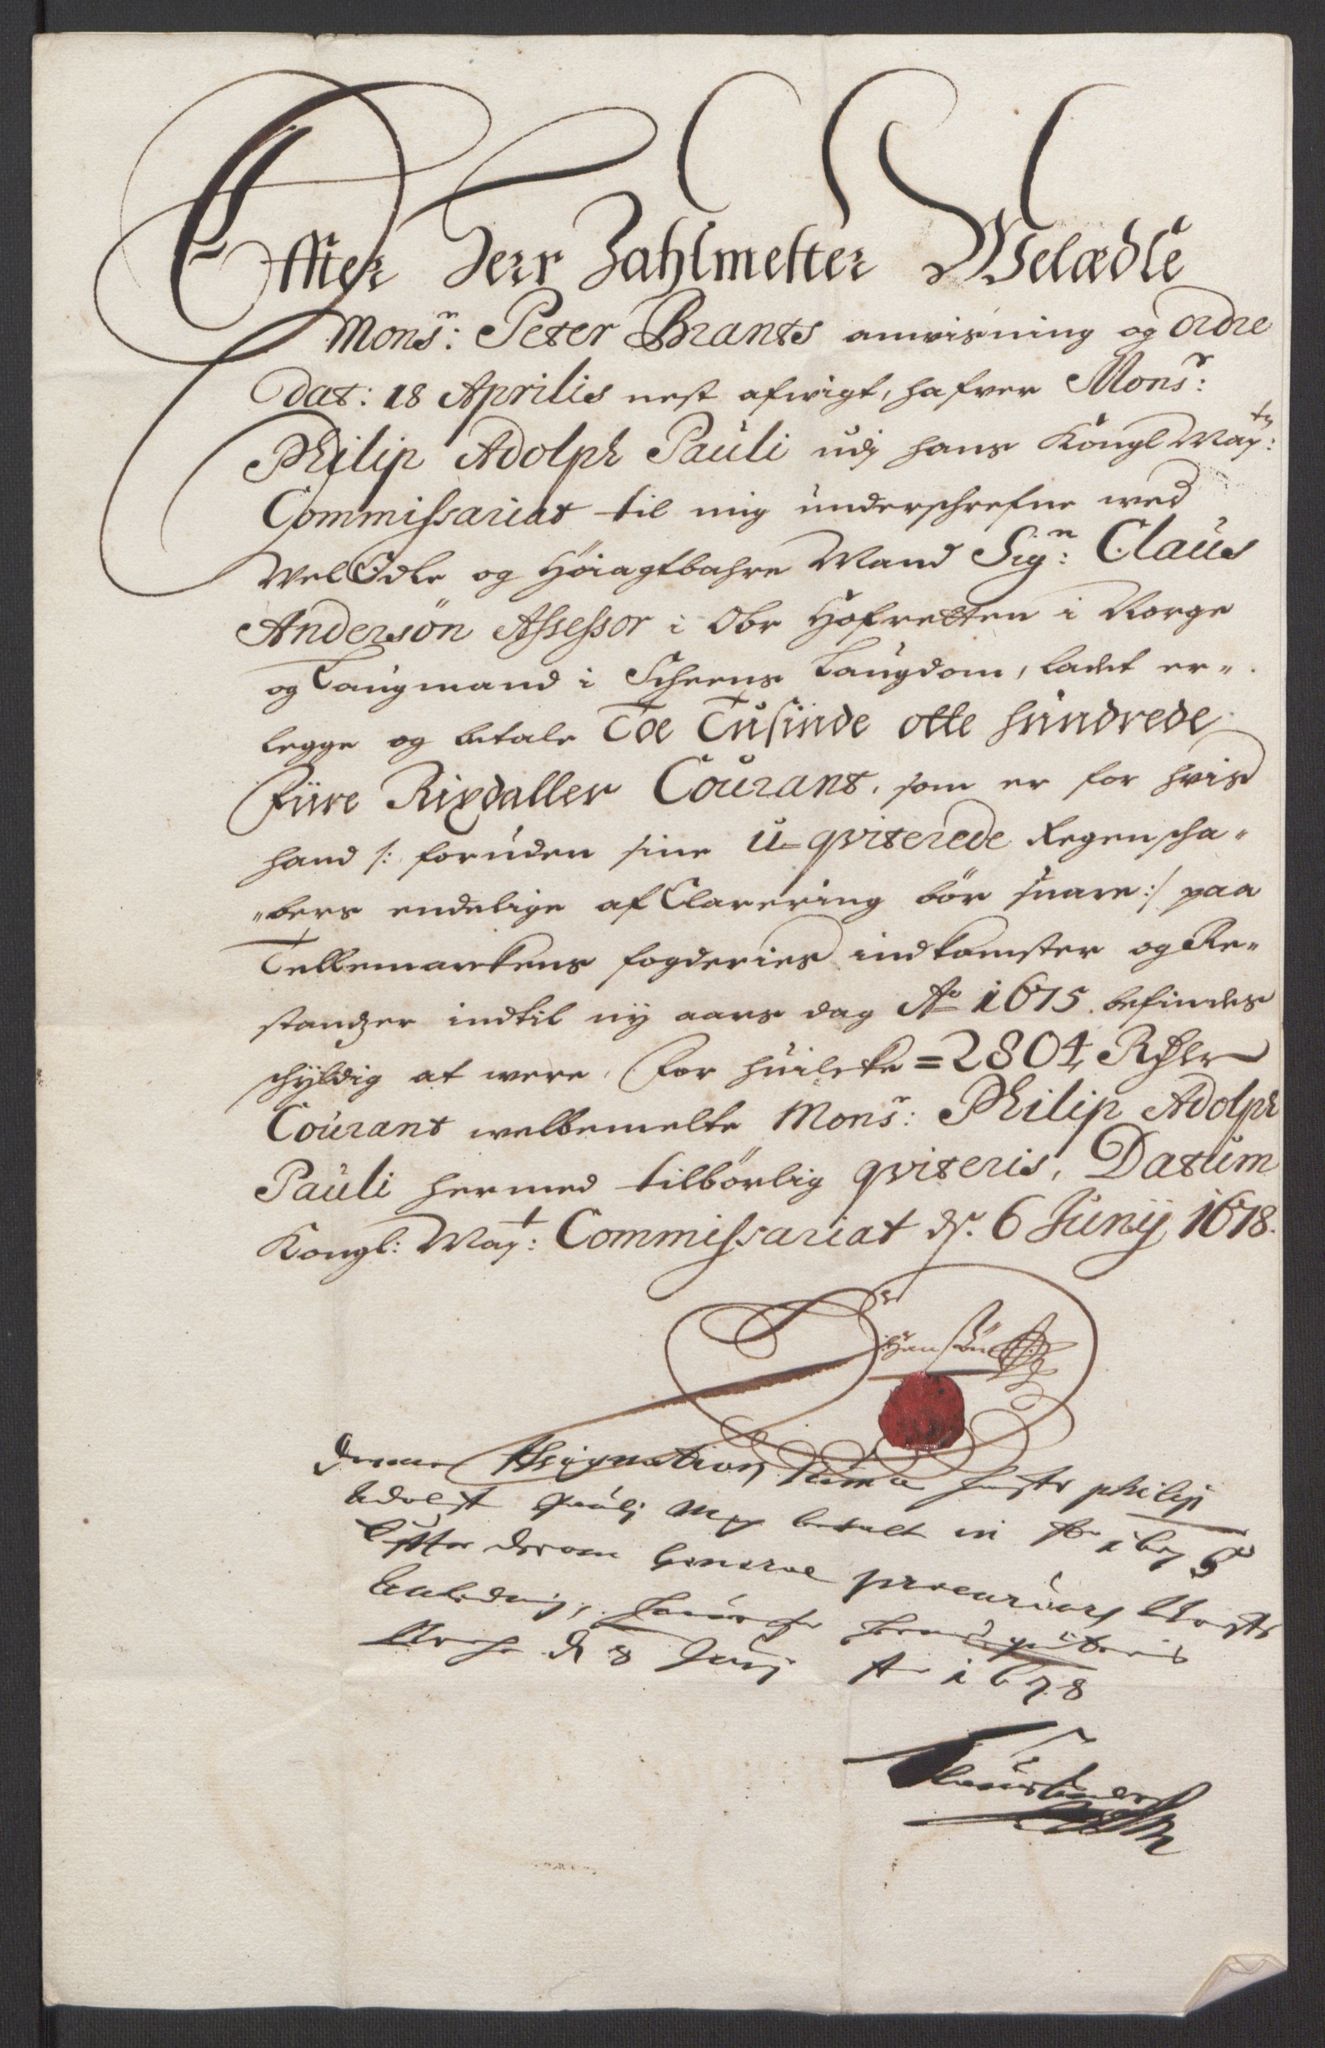 Effter Herr Zahlmester Welædle
Monsr: Peter Brants anvisning og ordre
dat: 18 Aprilis nest afwigt, hafver Monsr:
Philip Adolph Pauli udj hans Kongl Mayts:
Commissariat til mig underschrefne wed
WelEdle og Höiagtbahre Mand Sign: Claus
Andersön Assessor i Obr Hofretten i Norge
og Laugmand i Scheens Laugdom, ladet er-
legge og betale Toe Tusinde otte hundrede
Fiire Rixdaller Courant, som er for hvis
hand /: foruden sine u-qviterede Regenscha-
-bers endelige afClarering bör svare :/ paa
Tellemarckens fogderies indkomster og Re-
standzer indtil ny aars dag Ao 1675. befindes
schyldig at were. For huilcke = 2804 Rdler
Courant welbemelte Monsr: Philip Adolph
Pauli hermed tilbörlig qviteris, Datum
Kongl: Mayt: Commissariat ds. 6 Junij 1678.
Hans
Denne Assignation Philip
Adolff Paulj betalt 1675
Effter General
8 Junj Ao 1678
Claus Anders